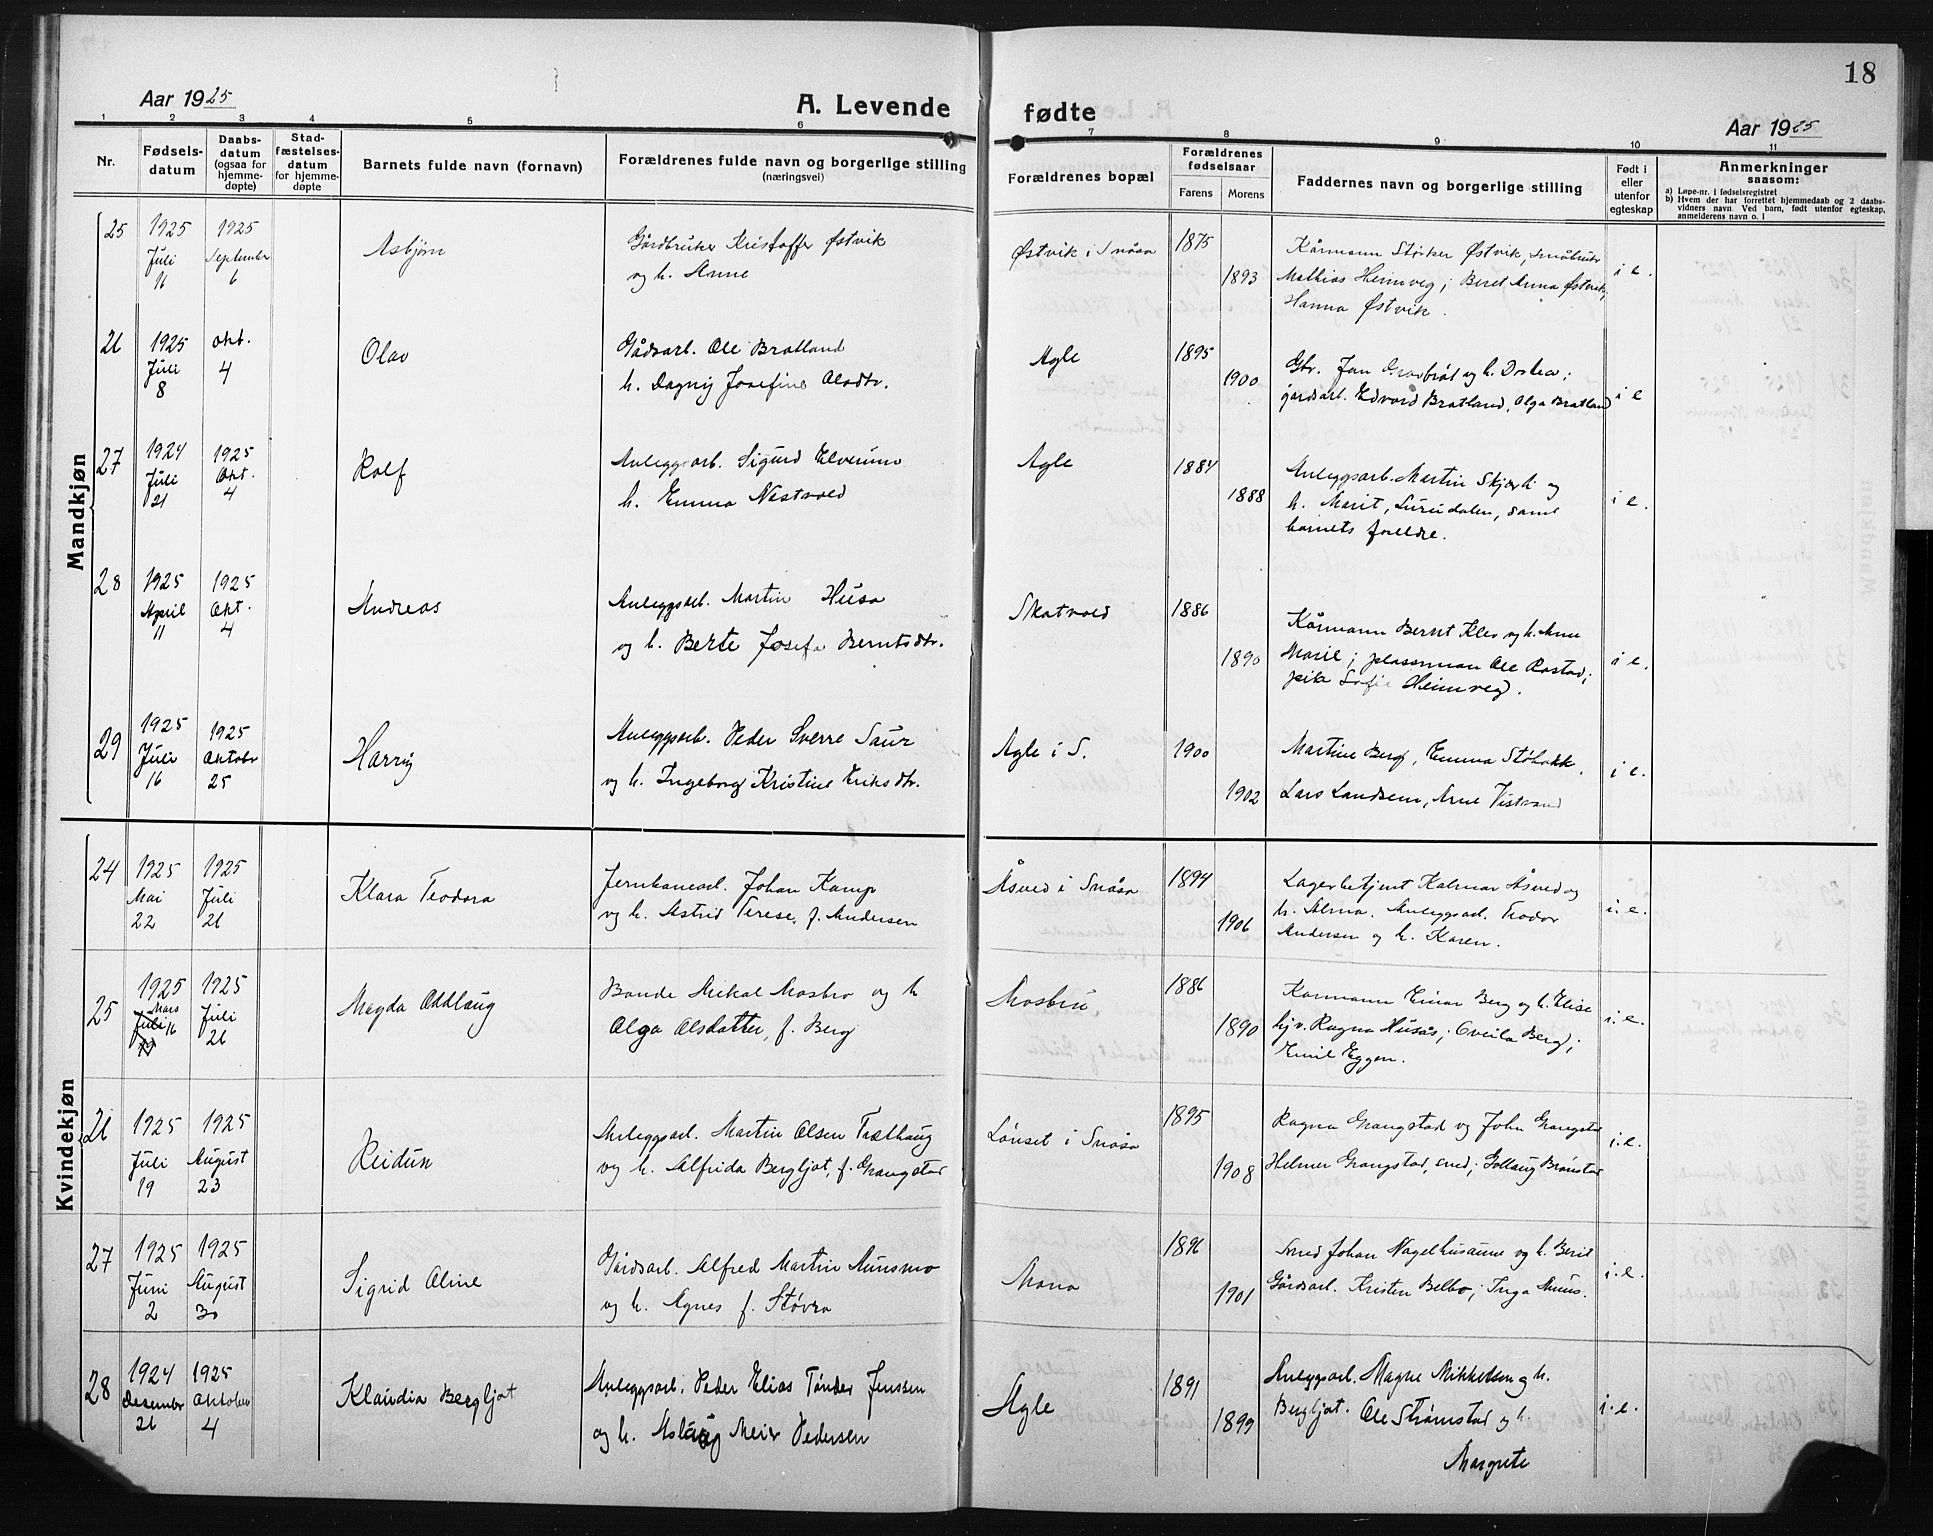 18
Aar 1925
A. Levende fødte
Aar 1925
1 2 3 4 5 6 7 8 9 10 11
Nr.
Fødsels-
datum
Daabs-
datum
(ogsaa for
hjemme-
døpte)
Stad-
fæstelses-
datum
for hjemme-
døpte
Barnets fulde navn (fornavn)
Forældrenes fulde navn og borgerlige stilling
(næringsvei)
Forældrenes bopæl
Forældrenes
fødselsaar
Farens Morens
Faddernes navn og borgerlige stilling
Født i
eller
utenfor
egteskap
Anmerkninger
saasom:
a) Løpe-nr. i fødselsregistret
b) Hvem der har forrettet hjemmedaab og 2 daabs-
vidners navn. Ved barn, født utenfor egteskap,
anmelderens navn o. l
Mandkjøn
25
1925
Juli
11
1925
September
6
Asbjørn
Gårdbruker Kristoffer Østvik
og h. Anne
Østvik i Snåsa
1875
1893
Kårmann Størker Østvik, småbruker
Mathias Heimveg; Beret Anna Østvik;
Hanna Østvik.
i e.
26
1925
Juli
8
okt.
4
Olav
Gådsarb. Ole Bratland
h. Dagny Josefine Olsdtr.
Agle
1895
1900
Gbr. Jon Grønbrøt og h. Dortea;
gårdsarb. Edvard Bratland, Olga Bratland
i e
27
1924
Juli
21
1925
Okt.
4
Rolf
Anleggsarb. Sigurd Elverum
h. Emma Nestvold
Agle
1884
1888
Anleggsarb. Martin Skjærli og
h. Marit, Lurudalen, samt
barnets foreldre.
i e.
28
1925
April
11
1925
Okt.
4
Andreas
Anleggsarb. Martin Husa
og h. Berte Josefa Berntsdtr.
Skatvold
1886
1890
Kårmann Bernt Klev og h. Anne
Marie; plassman Ole Rostad;
pike Sofie Heimveg.
i e.
29
1925
Juli
16
1925
Oktobr
25
Harry
Anleggsarb. Peder Sverre Saur
og h. Ingeborg Kristine Eriksdtr.
Agle i S.
1900
1902
Martine Berg, Emma Støbakk,
Lars Landsem, Arne Vistvand
i e.
Kvindekjøn
24
1925
Mai
22
1925
Juli
26
Klara Teodora
Jernbanearb. Johan Kamp
og h. Astrid Terese, f. Andersen
Åsved i Snåsa
1894
1906
Lagerbetjent Kalmar Åsved og
h. Alma. Anleggsarb. Teodor
Andersen og h. Karen.
i. e.
25
1925
Mars
Juli 16
19
1925
Juli
26
Magda Oddlaug
Bonde Mikal Mosbro og h
Olga Olsdatter, f. Berg
Mosbru,
1886
1890
Karmann Einar Berg og h. Elise
hjv. Ragna Husås; Oveila Berg;
Emil Eggen.
i. e.
26
1925
Juli
19
1925
August
23
Reidun
Anleggsarb. Martin Olsen Trethaug
og h. Alfrida Bergljot, f. Grangstad
Lønset i Snåsa
1895
1908
Ragna Grangstad og John Grangstad
Helmer Grangstad, smed; Gollaug Brønstad
i. e.
27
1925
Juni
2
1925
August
30
Sigrid Oline
Gårdsarb. Alfred Martin Aunsmo
og h. Agnes f. Støvra
Mona
1896
1901
Smed Johan Nagelhusaune og h. Berit
Gårdsarb. Kristen Belbo; Inga Auns.
i. e.
28
1924
Desember
26
1925
Oktober
4
Klaudia Bergljot
Anleggsarb. Peder Elias Tønder Jenssen
og h. Aslaug Meier Pedersen
Agle
1891
1899
Anleggsarb. Magne Mikkelsen og h.
Bergljot. Ole Strømstad og h.
Margrete
i. e.